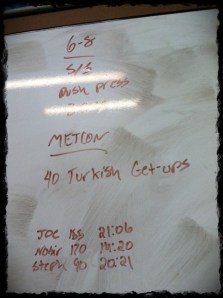 6-8
5/3
Push Press
METCON
40 Turkish Get-ups
JOE 21:06
170 14:20
90 20:21